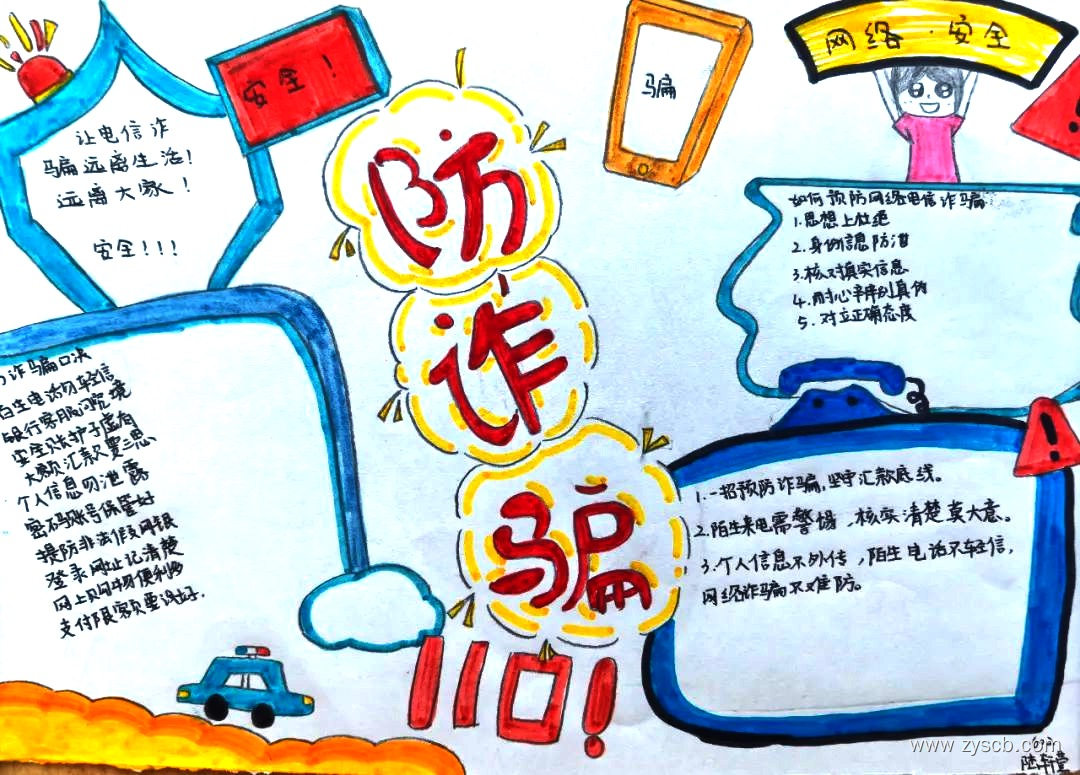 安全！
让电信诈
骗远离生活！
远离大家！
安全！！！
防
诈
骗
110！
骗
网络·安全
如何预防网络电信诈骗
1.思想上杜绝
2.身份信息防泄
3.核对真实信息
4.耐心辨别真伪
5.对立正确态度
诈骗口决
陌生电话勿轻信
银行客服问究竟
安全账护子虚有
大额汇款要三思
个人信息勿泄露
密码账号保管好
提防非法假网银
登录网址记清楚
网上购物便利多
支付限额要设好.
1.一招预防诈骗,坚守汇款底线。
2.陌生来电需警惕，核实清楚莫大意。
3.个人信息不外传，陌生电话不轻信，
网络诈骗不难防。
www.zyscb.com